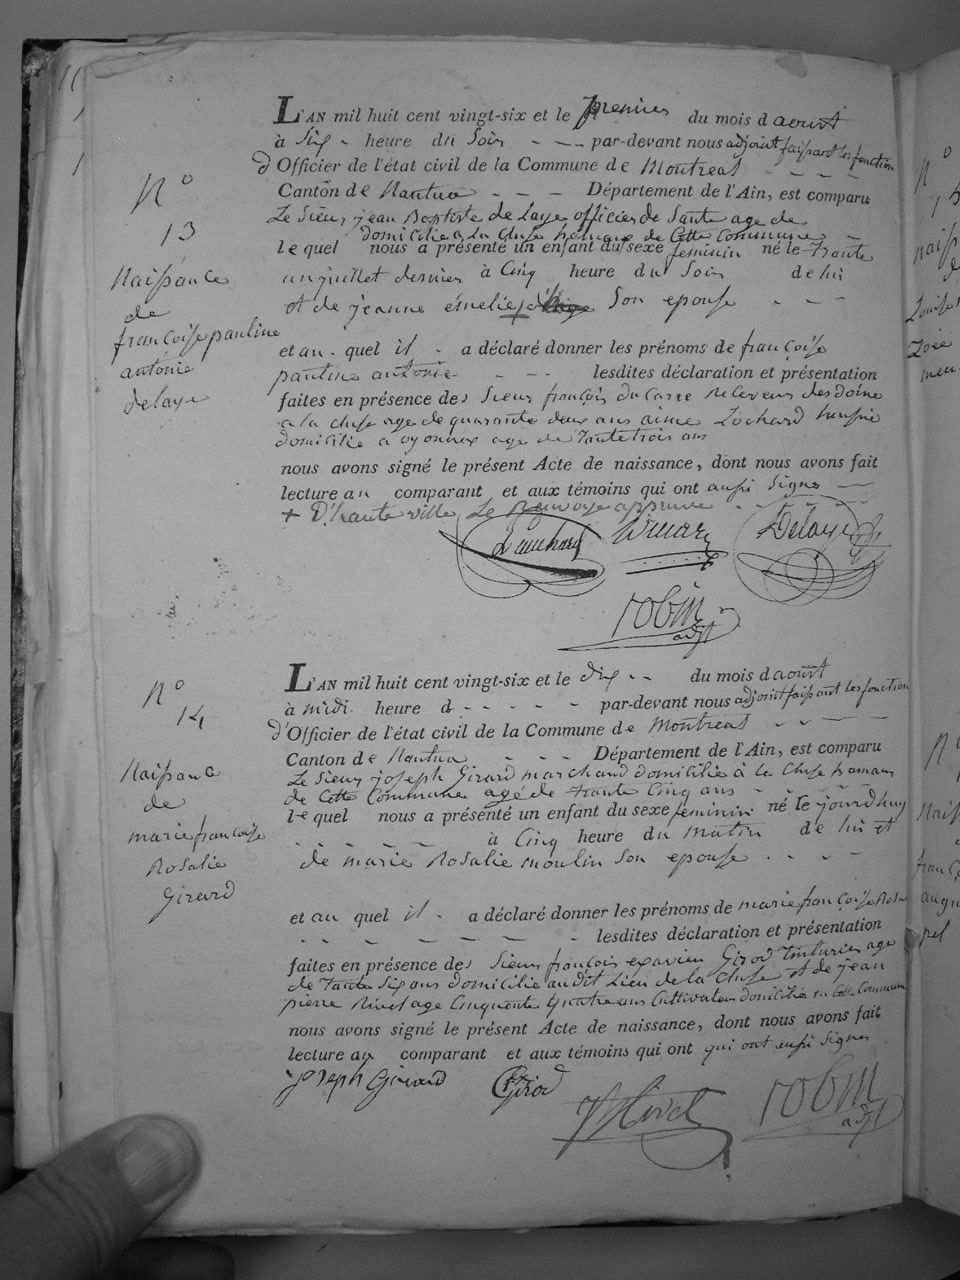 N.º
13
Naissance
de
françoise pauline
antonie
delaye
L'AN mil huit cent vingt-six et le premier du mois d aoust
à Six - heure du Soir - - - par-devant nous adjoint faissant les fonction
d'Officier de l'état civil de la Commune de Montreal - - - -
Canton de Nantua - - - Département de l'Ain, est comparu
Le Sieur jean Baptiste de Laye officier de Sante age de
domicilié a la Cluse hameau de Cette Commune -
le quel nous a présenté un enfant du sexe feminin né le trante
un juillet dernier à Cinq heure du Soir de lui
et de jeanne émelie + Son epouse - - -
et au - quel il - a déclaré donner les prénoms de françoise
pauline antonie - - - lesdites déclaration et présentation
faites en présence des Sieur françois du Carre receveur des
a la cluse age de quarante deux ans aime Lochard
domicilié a oyonnex age de Tante trois ans
nous avons signé le présent Acte de naissance, dont nous avons fait
lecture au comparant et aux témoins qui ont aussi Signe
+ D'hauteville Le Renvoye approuve
Delaye
robin
adjt
N.º
14
Naissance
de
marie françoise
Rosalie
Girard
L'AN mil huit cent vingt-six et le dix - - du mois d aoust
à midi heure d - - - - - par-devant nous adjoint faissant les fonction
d'Officier de l'état civil de la Commune de Montreal - - - -
Canton de Nantua - - - Département de l'Ain, est comparu
Le Sieur joseph Girard marchand domicilié à la Cluse hameau
de Cette Commune agé de trante Cinq ans - - - -
le quel nous a présenté un enfant du sexe feminin né le jourdhuy
- - - - - à Cinq heure du matin de lui et
de marie Rosalie moulin Son epouse - - - -
et au quel il - a déclaré donner les prénoms de marie françoise Rosalie
- - - - - - - lesdites déclaration et présentation
faites en présence des Sieur françois exavier Girod tinturier age
de Tante Six ans domicilié audit Lieu de la Cluse et de jean
pierre age Cinquante quatre ans Cultivateur domicilié en Cette Commune
nous avons signé le présent Acte de naissance, dont nous avons fait
lecture au comparant et aux témoins qui ont qui ont aussi Signes
Joseph Girard Girod
robin
adjt